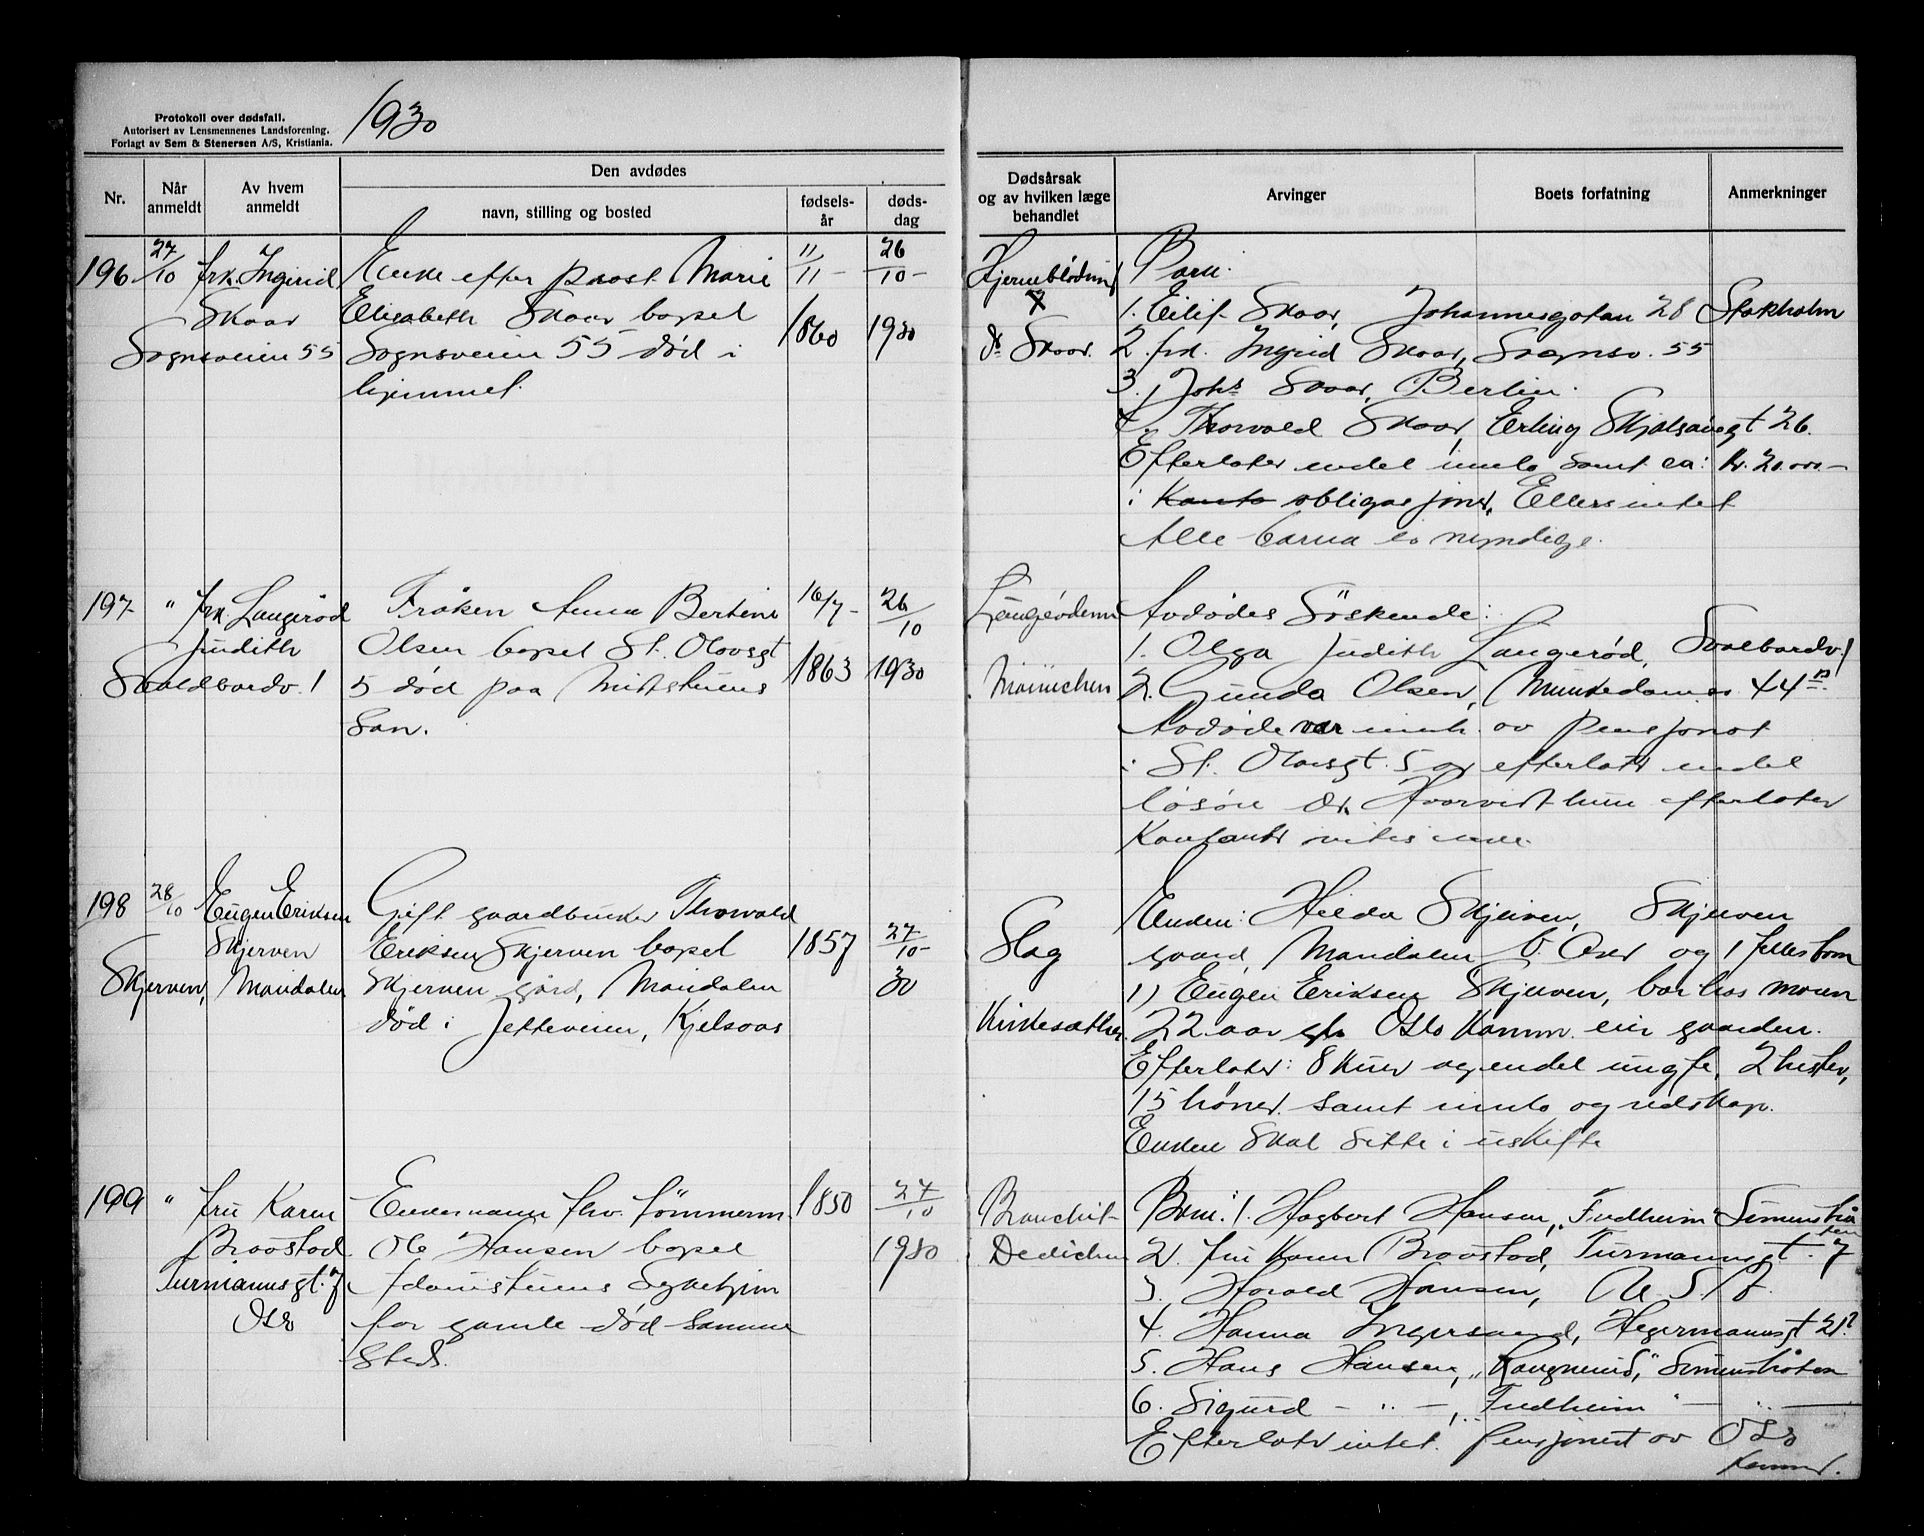 Protokoll over dødsfall.
Autorisert av Lensmennenes Landsforening.
Forlagt av Sem & Stenersen A/S, Kristiania.
1930
Nr.
Når anmeldt
Av hvem anmeldt
Den avdødes
navn, stilling og bosted
fødsels-år
døds-dag
Dødsårsak og av hvilken læge behandlet
Arvinger
Boets forfatning
Anmerkninger
196
27/10
frk. Ingrid
Skaar
Sognsveien 55
Enke efter prost Marie
Elisabeth Skaar bopel
Sognsveien 55 død i
hjemmet.
11/11 -
1860
26/10 -
1930
Hjerneblødning
dr Skaar.
Barn:
1. Eilif Skaar, Johannesgatan 28 Stokholm
2. frk. Ingrid Skaar, Sognsv. 55
3. Johs Skaar, Berlin.
4. Thorvald Skaar, Erling Skjalsønsgt 26.
Efterlater endel innbo samt ca: kr. 20.000 -
i Konto obligasjoner, Ellers intet
Alle barna er myndige.
197
" frk. Langerød
Judith
Svaldbardv. 1
Frøken Anna Bertine
Olsen bopel St. Olavsgt
5 død paa Miststuens
San.
16/7 -
1863
26/10
1930
Münichen
Avdødes Søskende:
1. Olga Judith Langerød, Svalbardv. 1
2. Gunda Olsen, Munkedamsv 44
Avdøde var innh. av pensjonat
i St. Olavsgt. 5 og efterlater endel
løsøre. Hvorvidt hun efterlater
Kontanter vites ikke.
198
28/10
Eugen Eriksen
Skjerven
Skjerven, Maridalen
Gift gaardbruker Thorvald
Eriksen Skjerven bopel
Skjerven gård, Maridalen
død i Jetteveien, Kjelsaas
1857
27/10 -
30
Slag
Kirkesæther
Enken: Hilda Skjerven, Skjerven
gaard, Maridalen V. Aker og 1 felles barn
1) Eugen Eriksen Skjerven, bor hos moren
22 aar gl. Oslo Komm. eier gaarden.
Efterlater: 8 kuer og endel ungfe, 2 hester,
15 høner samt innbo og redskap.
Enken skal sitte i uskifte
199
" fru Karen
Braastad
Turmannsgt. 7
Oslo
Enkemann fhv. tømmerm.
Ole Hansen bopel
Adamstuens Sykehjem
for gamle død samme
sted.
1850
27/10
1930
Bronchit-
Dedichen
Barn: 1. Hagbart Hansen, "Fredheim" Simensbråten
2. fru Karen Braastad, Turmannsgt. 7
3. Harald Hansen, U S A.
4. Hanna Ingersand, Hegermannsgt 21?
5. Hans Hansen, Simensbråten
6. Sigurd - " -, "Fredheim" - " -
Efterlater intet. pensjonist av Oslo
komm.